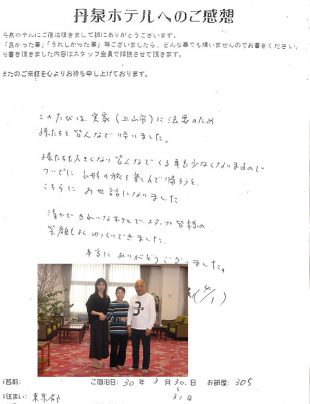 丹泉ホテルへのご感想
丹泉ホテルにご宿泊頂きまして誠にありがとうございます。
「良かった事」「うれしかった事」等ございましたら、どんな事でも構いませんのでお書きください。
お書き頂きました内容はスタッフ全員で拝読させて頂きます。
またのご来館を心よりお待ち申し上げております。
このたびは 実家（上山市）に 法要のため
孫たちと皆んなで 帰りました。
孫たちも大きくなり 皆んなでくる事も少なくなりますので
ついでに 山形の旅を楽しんで帰ろうと
こちらに お世話になりました
清かで きれいなホテルで、スタッフ皆様の
笑顔もよく ゆっくりできました
本当に ありがとうございました。
(4/1)
お名前
ご宿泊日 30 年 3 月 30 日 お部屋 305
お住まい 東京都
31日